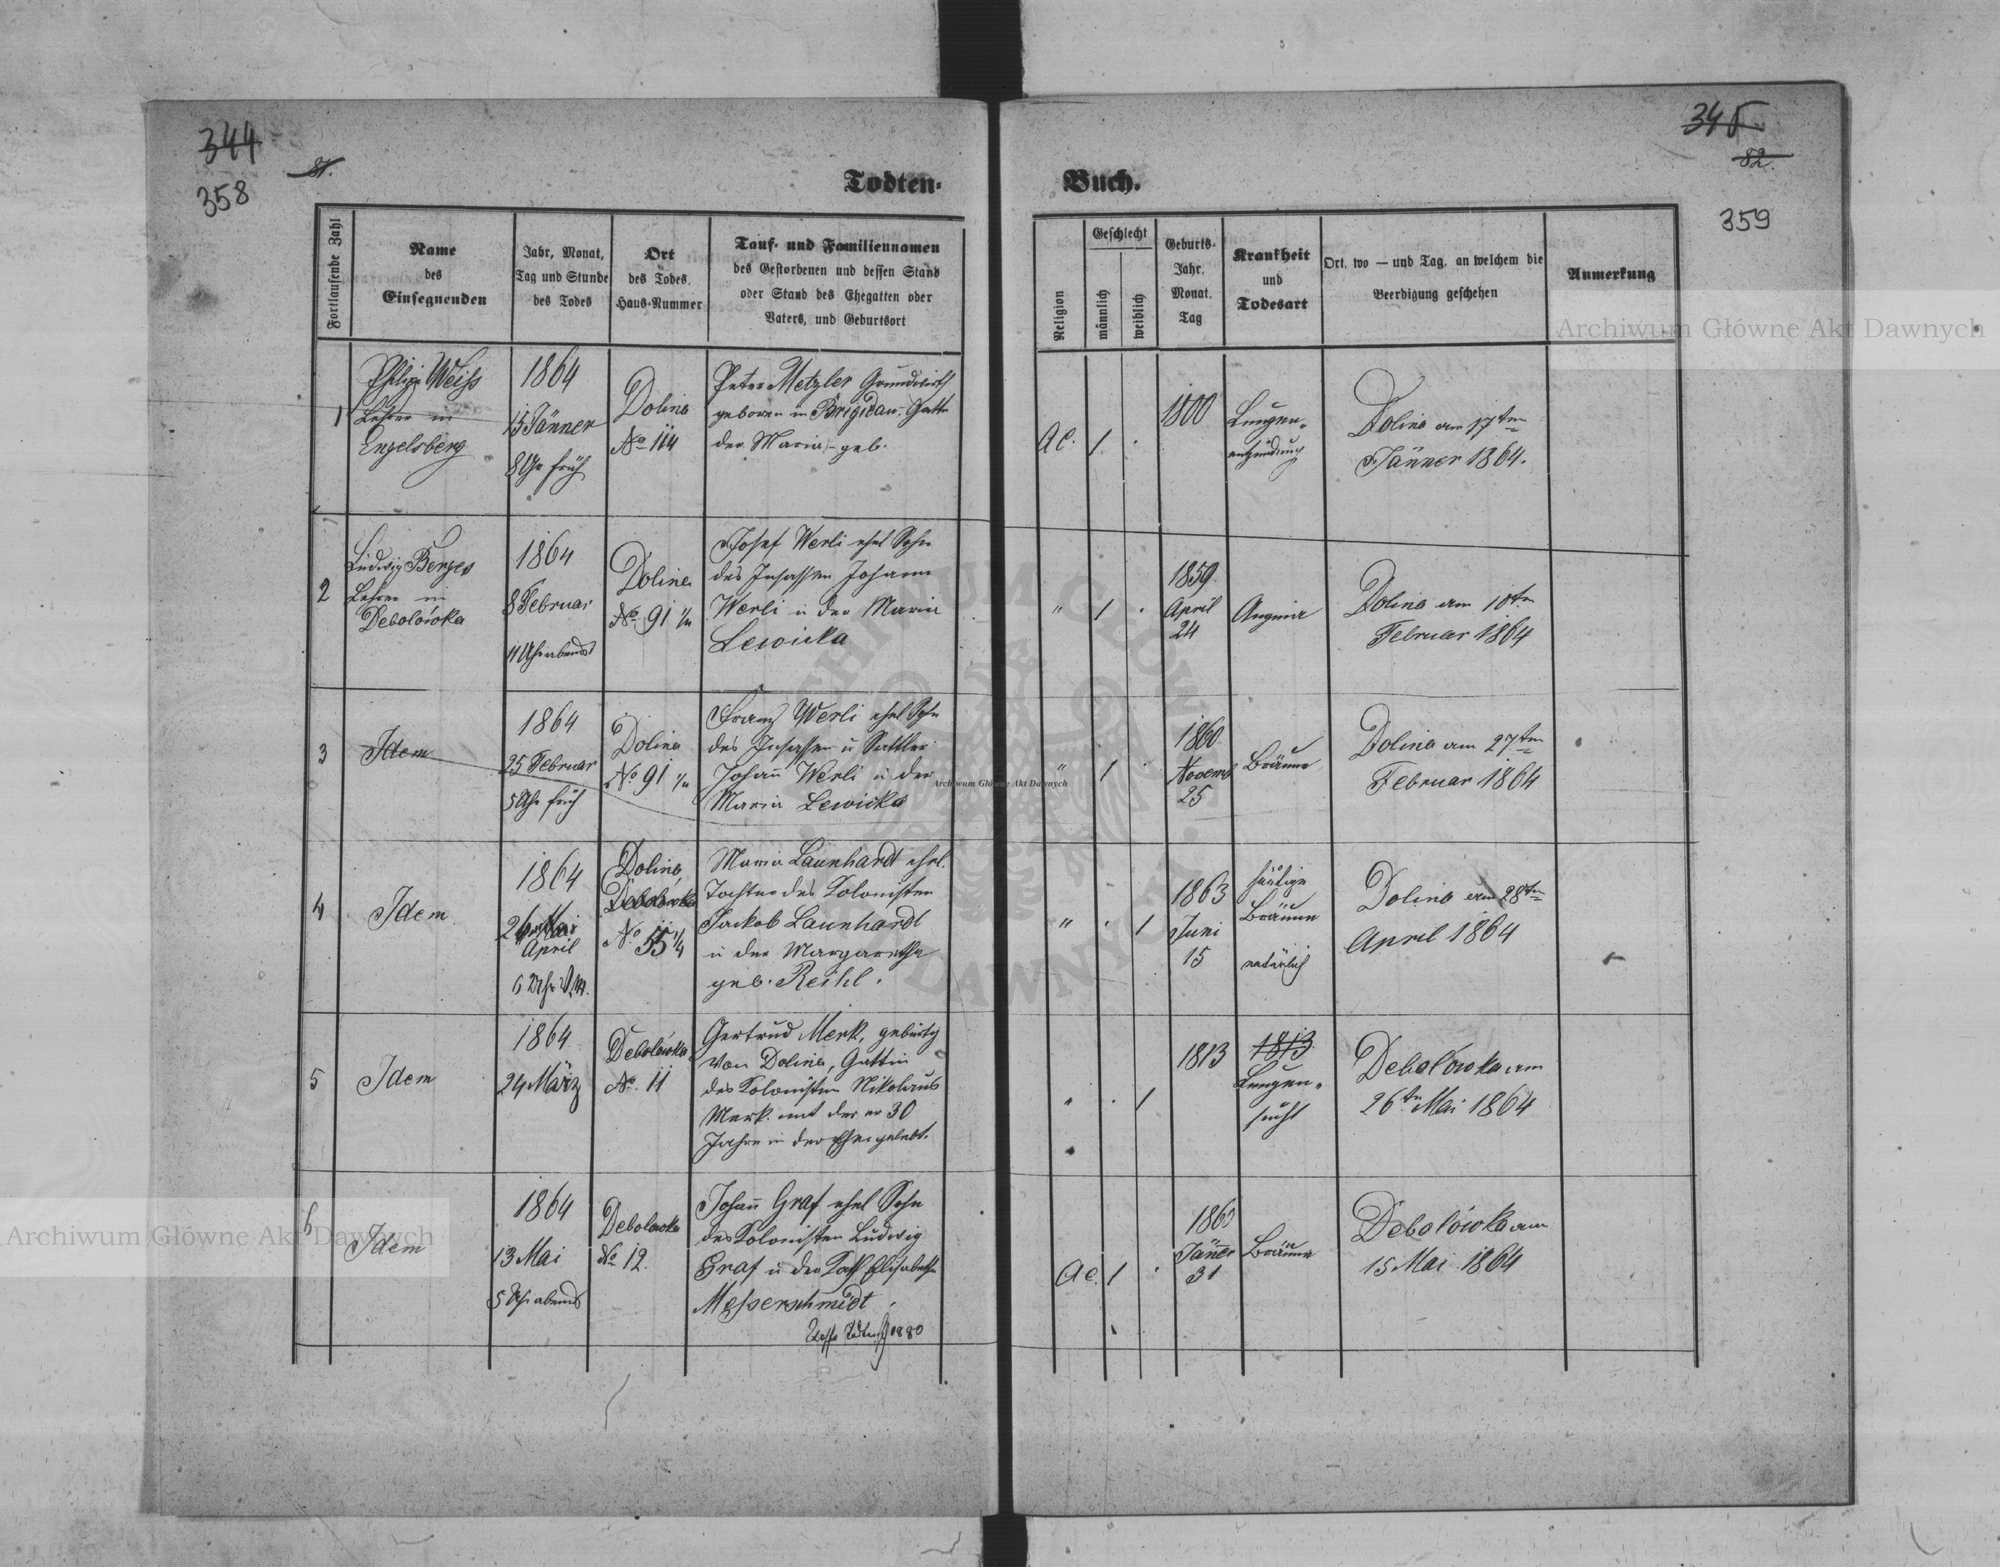 344
81.
358
Todten-
Fortlaufende Zahl
Name
des
Einsegnenden
Jahr, Monat,
Tag und Stunde
des Todes
Ort
des Todes.
Haus-Nummer
Tauf- und Familiennamen
des Gestorbenen und dessen Stand
oder Stand des Ehegatten oder
Vaters, und Geburtsort
1
Weiss
Lehrer in
Engelsberg
1864
15 Jänner
8 Uhr früh
Dolina
No 114
Peter Metzler Grundwirth
geboren in Brigidau. Gatte
der Maria - geb.
2
Ludwig Berges
Lehrer in
Debolówka
1864
8 Februar
11 Uhr abends
Dolina
No 91
Josef Werli ehel Sohn
des Insassen Johann
Werli u der Maria
Lewicka
3
Idem
1864
25 Februar
5 Uhr früh
Dolina
No 91
Franz Werli ehel Sohn
des Insassen u Sattler
Johann Werli u der
Maria Lewicka
4
Idem
1864
26 Mai
April
6 Uhr V.M.
Dolina
Debolówka
No 55 1/4
Maria Launhardt ehel.
Tochter des Kolonisten
Jackob Launhardt
u der Margaretha
geb. Reihl.
5
Idem
1864
24 März
Debolówka
No. 11
Gertrud Merk, gebürtig
von Dolina, Gattin
des Kolonisten Nikolaus
Merk. mit der er 30
Jahre in der Ehe gelebt.
6
Idem
1864
13 Mai
5 Uhr abends
Debolowka
No 12.
Johann Graf ehel Sohn
des Kolonisten Ludwig
Graf u der Elisabetha
Messerschmidt.
1880
345
82.
359
Buch.
Religion
Geschlecht
männlich
weiblich
Geburts-
Jahr.
Monat.
Tag
Krankheit
und
Todesart
Ort, wo — und Tag, an welchem die
Beerdigung geschehen
Anmerkung
AC. 1 .
1800
Lungen-
entzündung
Dolina am 17ten
Jänner 1864.
" 1 .
1859
April
24
Angina
Dolina am 10ten
Februar 1864
" 1 .
1860
Novemb
25
Bräune
Dolina am 27ten
Februar 1864
" . 1
1863
Juni
15
häutige
Bräune
natürlich
Dolina am 28ten
April 1864
" . 1
1813
1813
Lungen-
sucht
Debolówka am
26ten Mai 1864
AC. 1 .
Jäner
31
Bräune
Debolówka am
15 Mai 1864
Archiwum Główne Akt Dawnych
Archiwum Główne Akt Dawnych
Archiwum Główne Akt Dawnych
ARCHIWUM GŁÓWNE
AKT DAWNYCH